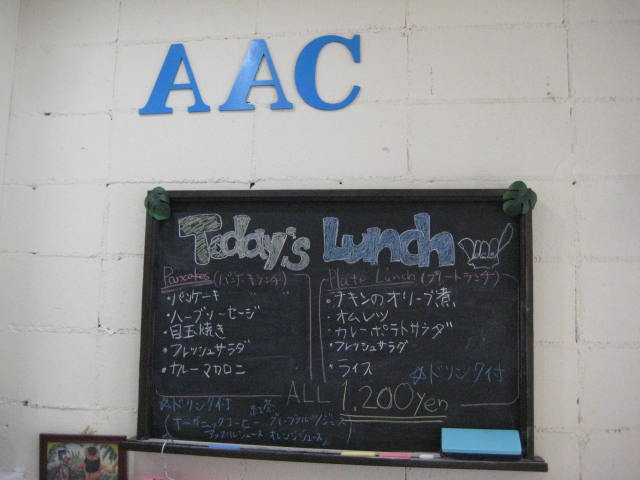 AAC
Today's Lunch
Pancakes (パンケーキランチ)
・パンケーキ
・ハーブソーセージ
・目玉焼き
・フレッシュサラダ
・カレーマカロニ
Plate Lunch (プレートランチ)
・チキンのオリーブ煮
・オムレツ
・カレーポテトサラダ
・フレッシュサラダ
・ライス
※ドリンク付
ALL 1,200yen
※ドリンク付
(オーガニックコーヒー 紅茶 グレープフルーツジュース
アップルジュース・オレンジジュース)